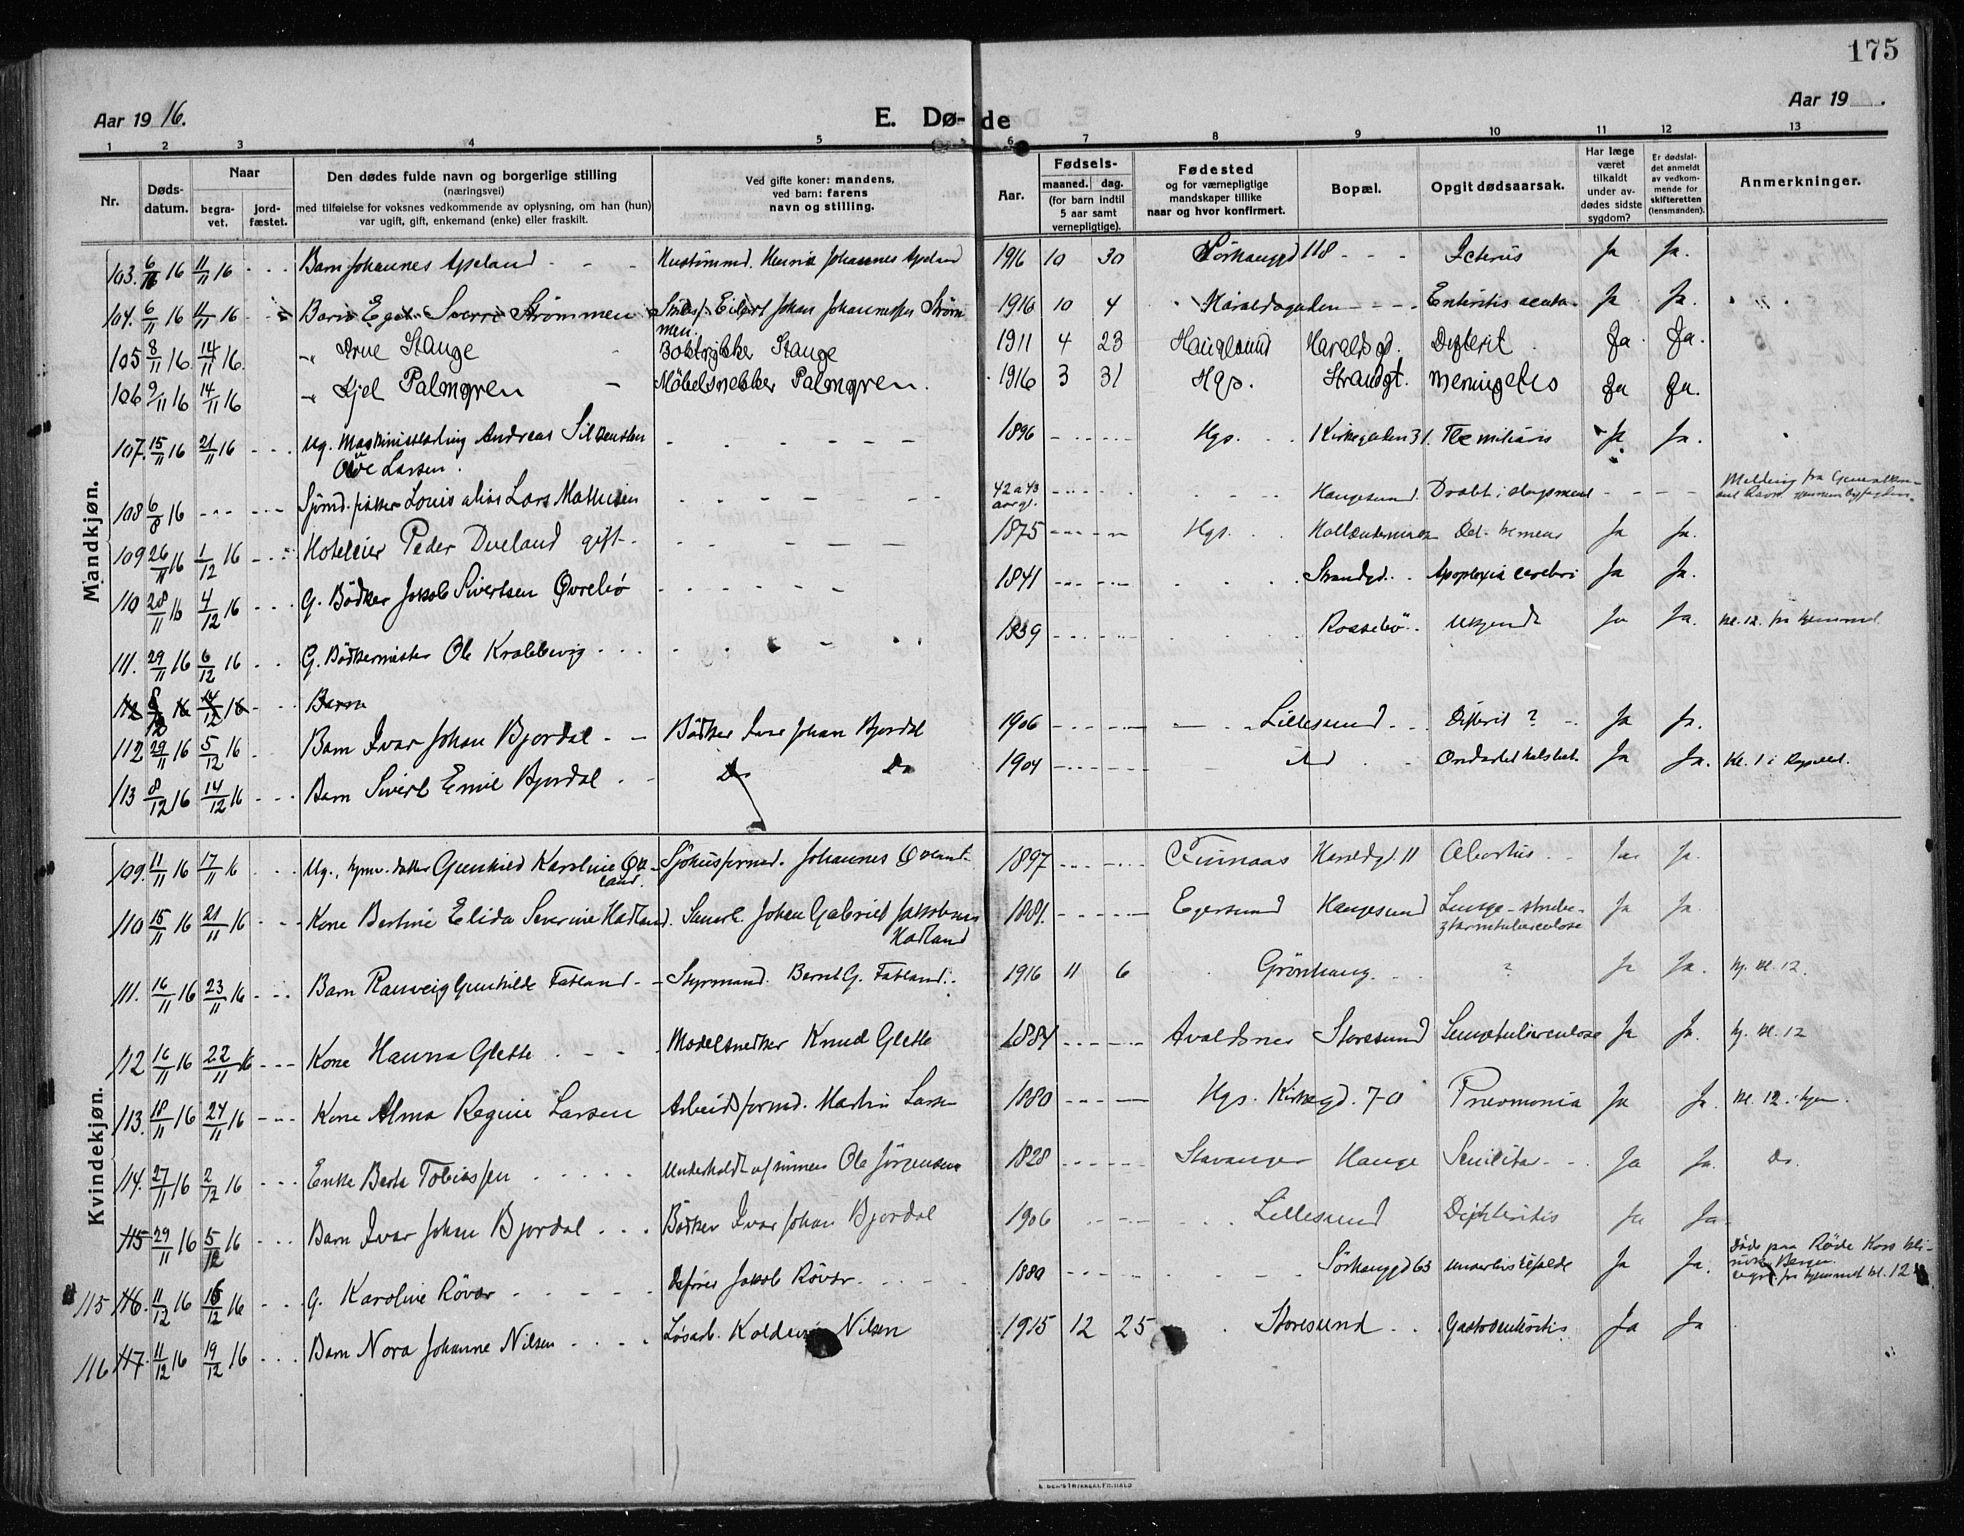 175
Aar 1916.
E. Dø-de
Aar 19 .
1 2 3 4 5 6 7 8 9 10 11 12 13
Nr.
Døds-
datum.
Naar
begra-
vet.
jord-
fæstet.
Den dødes fulde navn og borgerlige stilling
(næringsvei)
med tilføielse for voksnes vedkommende av oplysning, om han (hun)
var ugift, gift, enkemand (enke) eller fraskilt.
Ved gifte koner: mandens,
ved barn: farens
navn og stilling.
Aar.
Fødsels-
maaned. dag.
(for barn indtil
5 aar samt
vernepligtige).
Fødested
og for værnepligtige
mandskaper tillike
naar og hvor konfirmert.
Bopæl.
Opgit dødsaarsak.
Har læge
været
tilkaldt
under av-
dødes sidste
sygdom?
Er dødsfal-
det anmeldt
av vedkom-
mende for
skifteretten
(lensmanden).
Anmerkninger.
Mandkjøn.
103. 6/11 16 11/11 16 Barn Johannes Apeland Johannes Apeland 1916 10 30 118 Icterus Ja Ja.
104. 6/11 16 11/11 16 Barn Sverre Strømmen Eilert Johan Johannessen Strøm
men. 1916 10 4 Haraldsgaden Enteritis acuta Ja Ja.
105 8/11 16 14/11 16 " Arne Stange Boktrykker Stange 1911 4 23 Haugesund Haraldsgd. Difterit Ja Ja.
106 9/11 16 14/11 16 " Kjel Palmgren Møbelsnekker Palmgren. 1916 3 31 Hgs. Strandgt. Meningitis Ja Ja.
107. 15/11 16 21/11 16 Ug. Andreas
Larsen. 1896 Hgs. Kirkegaden 31. Tbc miliaris Ja Ja.
108 6/8 16 Sjømd. Louis alias Lars Mathisen 42 a 43
aar gl. Haugesund. Dræbt i Melding fra
109 26/11 16 1/12 16 Hoteleier Peder gift 1875 Hgs. Del. tremens Ja Ja.
110 28/11 16 4/12 16 G. Bødker Jakob Sivertsen Øvrebø 1841 Strandgd. Apoplexia cerebri Ja Ja.
111. 29/11 16 6/12 16 G. Bødkermester Ole 1839 Rossebø Ukjendt Ja Ja. kl. 12. fra hjemmet.
112 8/12 16 14/12 16 Barn
112 29/11 16 5/12 16 Barn Ivar Johan Bjordal Bødker Ivar Johan Bjordal 1906 Lillesund Difterit ? Ja Ja.
113 8/12 16 14/12 16 Barn Sivert Emil Bjordal Do Do 1904 Ja Ja. Kl. 1 i
Kvindekjøn.
109. 11/11 16 17/11 16 Ug., datter Gunhild Karoline Øv-
land. Johannes Øvland 1897 Haraldgt. 11 Abortus Ja Ja.
110 15/11 16 21/11 16 Kone Bertine Elida Severine Hadland. Johan Gabriel Jakobsen
Hadland 1881. Egersund Haugesund Lunge-strube-
& tarmtuberculose Ja Ja.
111. 16/11 16 23/11 16 Barn Ranveig Gunhilde Fatland Styrmand. Bernt G. Fatland 1916 11 6 Grønhaug. ? Ja Ja. hj. kl. 12.
112 16/11 16 22/11 16 Kone Hanna Glette Modelsnekker Knud Glette 1884 Avaldsnes Storesund Lungetuberculose Ja Ja. hj. kl. 12
113. 18/11 16 24/11 16 Kone Alma Regine Larsen Arbeidsformd. Martin Larsen 1880 Hgs. Kirkegd. 70 Pneomonia Ja Ja. kl. 12 i hjem.
114. 27/11 16 2/12 16 Enke Berta Tobiassen Underholdt af sønnen Ole Jørgensen 1828 Stavanger Hauge Senilitas Ja Ja. Do.
115 29/11 16 5/12 16 Barn Ivar Johan Bjordal Bødker Ivar Johan Bjordal 1906 Lillesund Difteritis Ja Ja
115 116. 11/12 16 16/12 16 G. Karoline Røvær Jakob Røvær 1880 63 Ja Ja. Død paa Røde Kors kli-
nik Bergen
fra hjemmet kl. 12
116 117. 11/12 16 19/12 16 Barn Nora Johanne Nilsen Løsarb. Nilsen 1915 12 25 Storesund Gastroenteritis Ja Ja